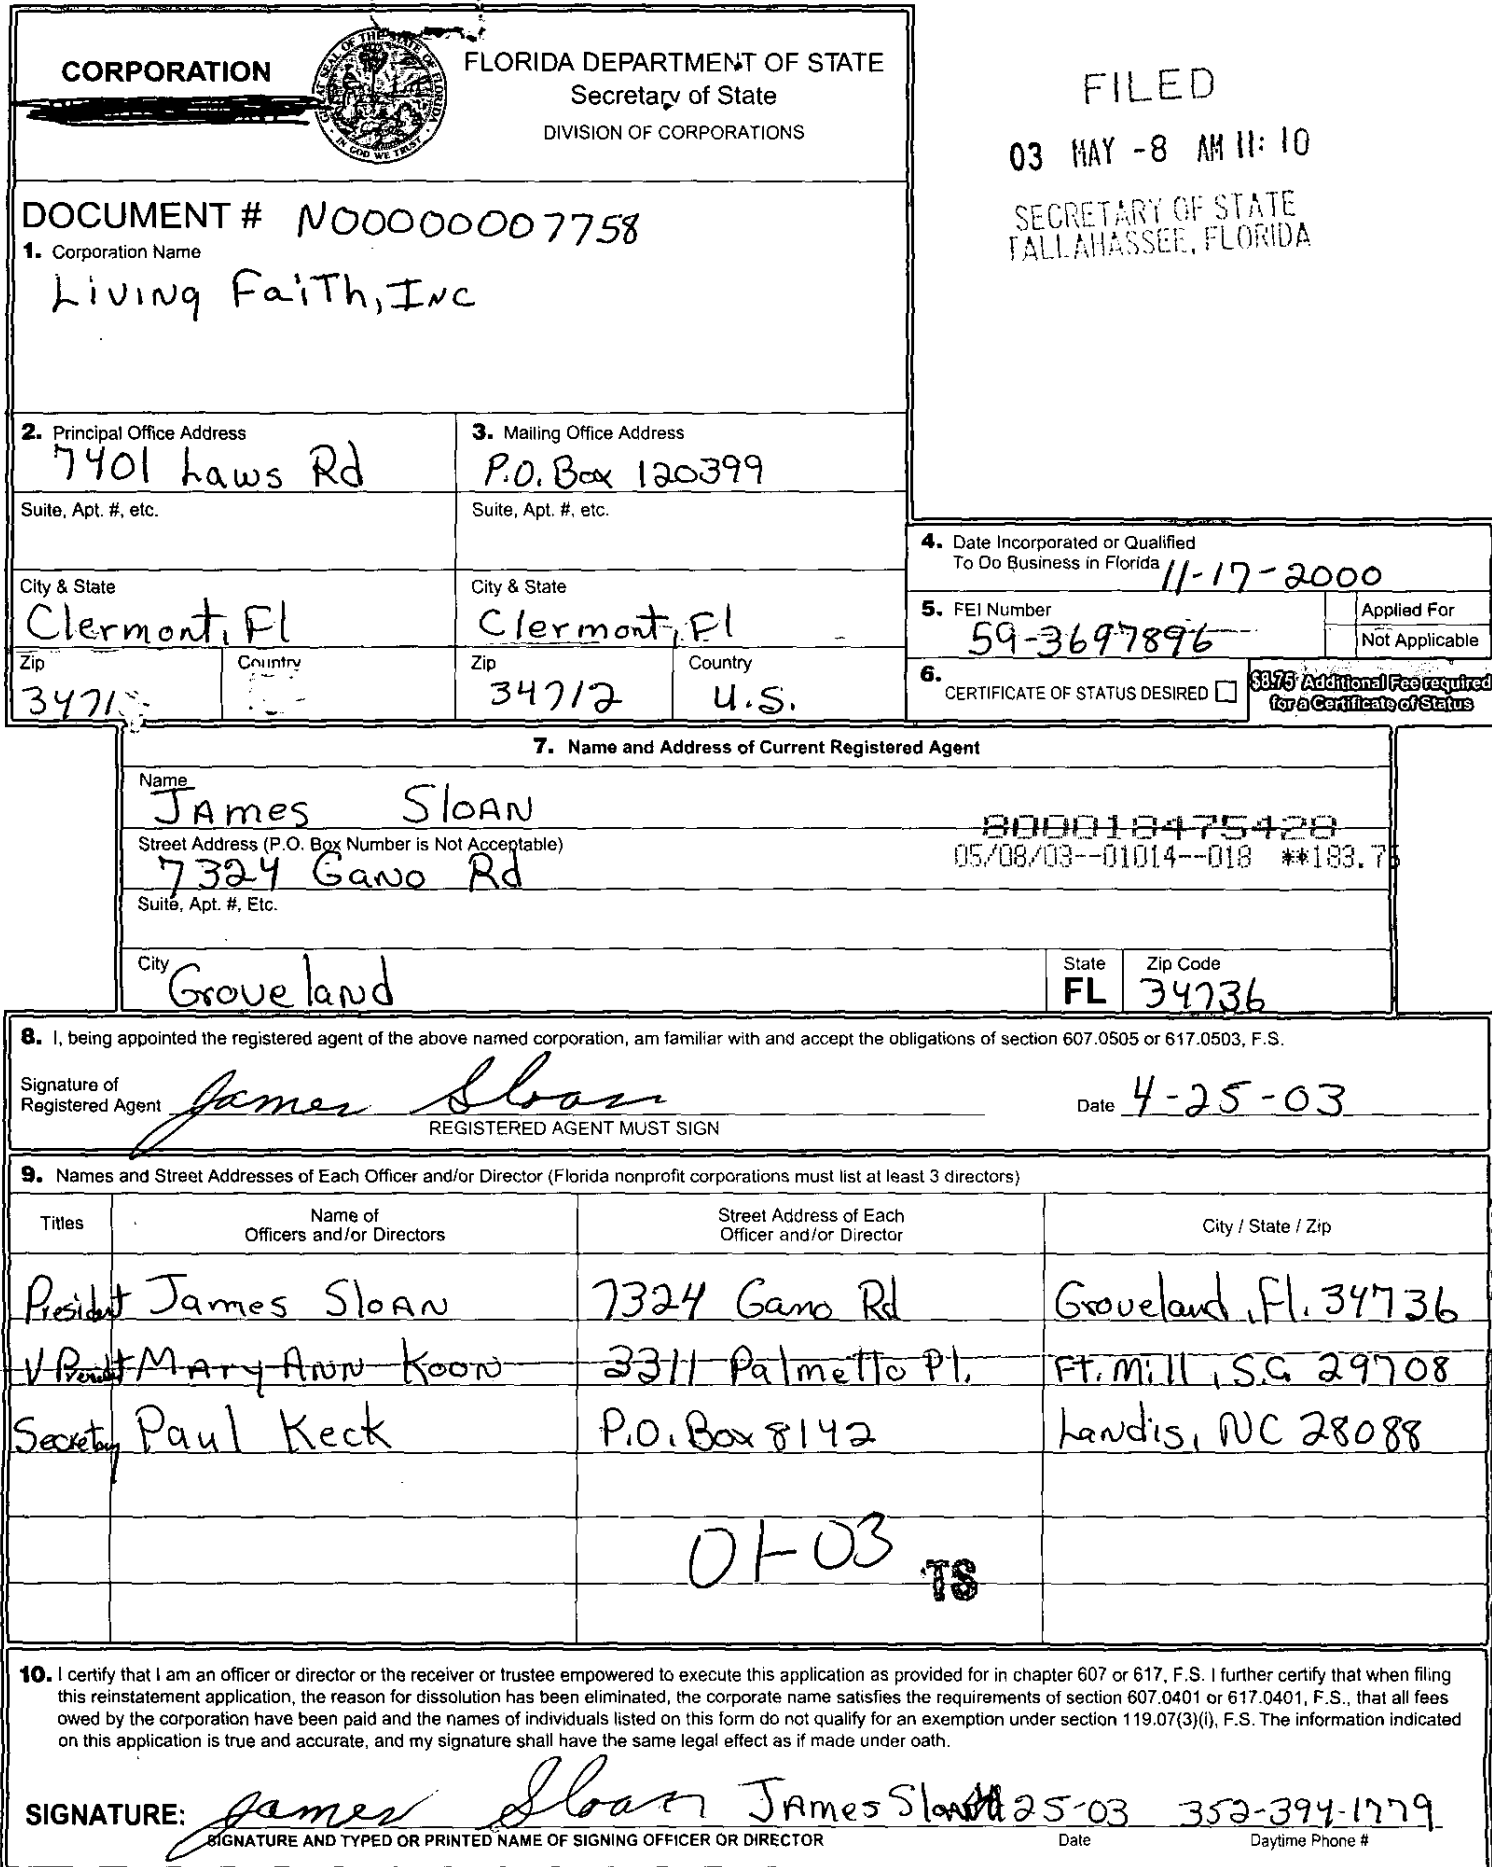 CORPORATION
GREAT SEAL OF THE STATE OF FLORIDA
IN GOD WE TRUST
FLORIDA DEPARTMENT OF STATE
Secretary of State
DIVISION OF CORPORATIONS
FILED
03 MAY -8 AM 11:10
SECRETARY OF STATE
TALLAHASSEE, FLORIDA
DOCUMENT # N00000007758
1. Corporation Name
Living Faith, Inc
2. Principal Office Address
7401 Laws Rd
3. Mailing Office Address
P.O. Box 120399
Suite, Apt. #, etc.
Suite, Apt. #, etc.
City & State
Clermont, Fl
City & State
Clermont, Fl
Zip
3471
Country
Zip
34712
Country
U.S.
4. Date Incorporated or Qualified
To Do Business in Florida 11-17-2000
5. FEI Number
59-3697896
Applied For
Not Applicable
6. CERTIFICATE OF STATUS DESIRED
$8.75 Additional Fee required
for a Certificate of Status
7. Name and Address of Current Registered Agent
Name
James Sloan
800018475428
Street Address (P.O. Box Number is Not Acceptable)
7324 Gano Rd
05/08/03--01014--018 **183.75
Suite, Apt. #, Etc.
City
Groveland
State
FL
Zip Code
34736
8. I, being appointed the registered agent of the above named corporation, am familiar with and accept the obligations of section 607.0505 or 617.0503, F.S.
Signature of
Registered Agent James Sloan
Date 4-25-03
REGISTERED AGENT MUST SIGN
9. Names and Street Addresses of Each Officer and/or Director (Florida nonprofit corporations must list at least 3 directors)
Titles
Name of
Officers and/or Directors
Street Address of Each
Officer and/or Director
City / State / Zip
President James Sloan 7324 Gano Rd Groveland, Fl. 34736
V President Mary Ann Koon 3311 Palmetto Pl. Ft. Mill, S.C. 29708
Secretary Paul Keck P.O. Box 8142 Landis, NC 28088
01-03
TS
10. I certify that I am an officer or director or the receiver or trustee empowered to execute this application as provided for in chapter 607 or 617, F.S. I further certify that when filing
this reinstatement application, the reason for dissolution has been eliminated, the corporate name satisfies the requirements of section 607.0401 or 617.0401, F.S., that all fees
owed by the corporation have been paid and the names of individuals listed on this form do not qualify for an exemption under section 119.07(3)(i), F.S. The information indicated
on this application is true and accurate, and my signature shall have the same legal effect as if made under oath.
SIGNATURE: James Sloan James Sloan 25-03 352-394-1779
SIGNATURE AND TYPED OR PRINTED NAME OF SIGNING OFFICER OR DIRECTOR
Date
Daytime Phone #